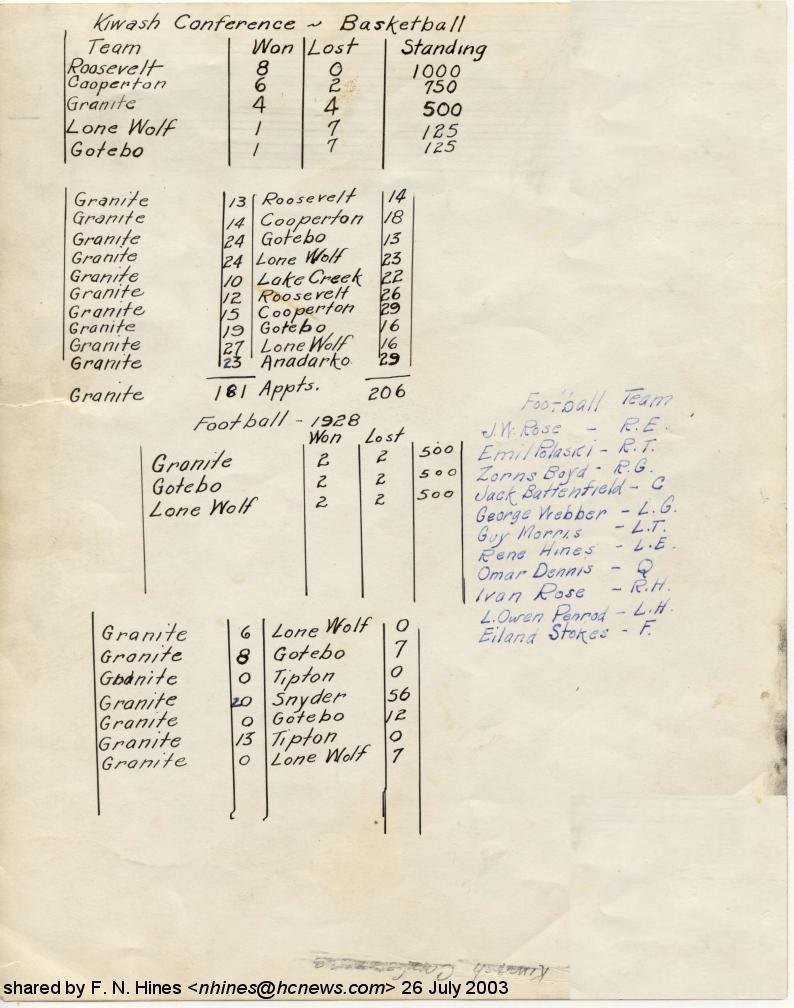 Kiwash Conference ~ Basketball
Team Won Lost Standing
Roosevelt 8 0 1000
Cooperton 6 2 750
Granite 4 4 500
Lone Wolf 1 7 125
Gotebo 1 7 125
Granite 13 Roosevelt 14
Granite 14 Cooperton 18
Granite 24 Gotebo 13
Granite 24 Lone Wolf 23
Granite 10 Lake Creek 22
Granite 12 Roosevelt 26
Granite 15 Cooperton 29
Granite 19 Gotebo 16
Granite 27 Lone Wolf 16
Granite 23 Anadarko 29
Granite 181 Appts. 206
Football - 1928
Won Lost
Granite 2 2 500
Gotebo 2 2 500
Lone Wolf 2 2 500
Football Team
J.W. Rose - R.E.
Emil Polaski - R.T.
Zorns Boyd - R.G.
Jack Battenfield - C
George Webber - L.G.
Guy Morris - L.T.
Rene Hines - L.E.
Omar Dennis - Q
Ivan Rose - R.H.
L. Owen Penrod - L.H.
Eiland Stokes - F.
Granite 6 Lone Wolf 0
Granite 8 Gotebo 7
Granite 0 Tipton 0
Granite 20 Snyder 56
Granite 0 Gotebo 12
Granite 13 Tipton 0
Granite 0 Lone Wolf 7
Kiwash Conference
shared by F. N. Hines <nhines@hcnews.com> 26 July 2003